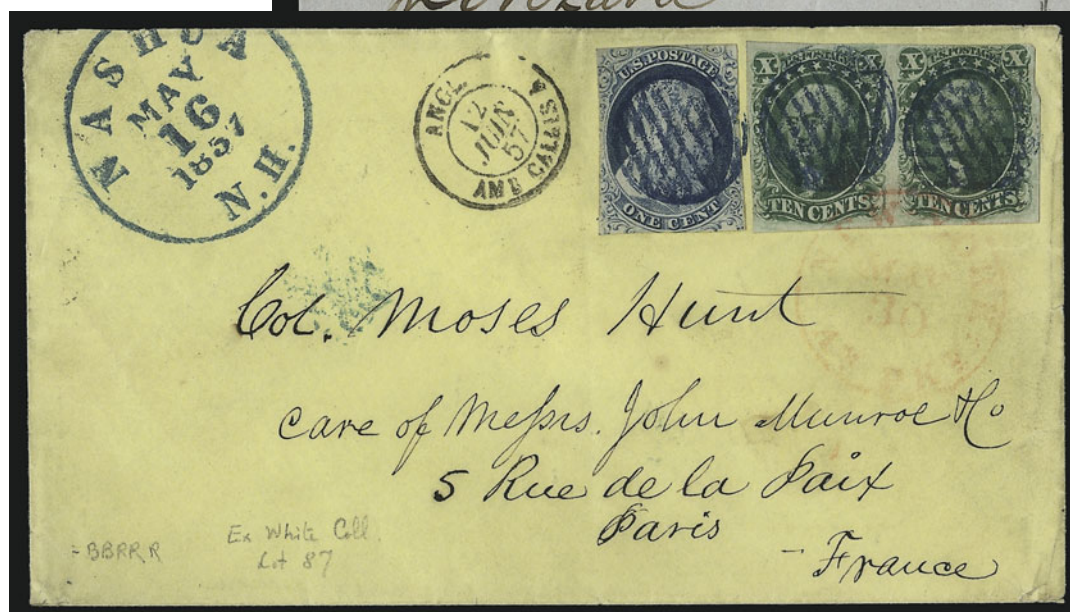 NASHUA N.H.
MAY
16
1857
ANGL. AMB. CALAIS A
12
JUIN
57
U.S. POSTAGE
ONE CENT
X U.S. POSTAGE X
TEN CENTS
X U.S. POSTAGE X
TEN CENTS
Col. Moses Hunt
care of Messrs. John Munroe & Co
5 Rue de la Paix
Paris
- France
Ex White Coll.
Lot 87
BBRR R